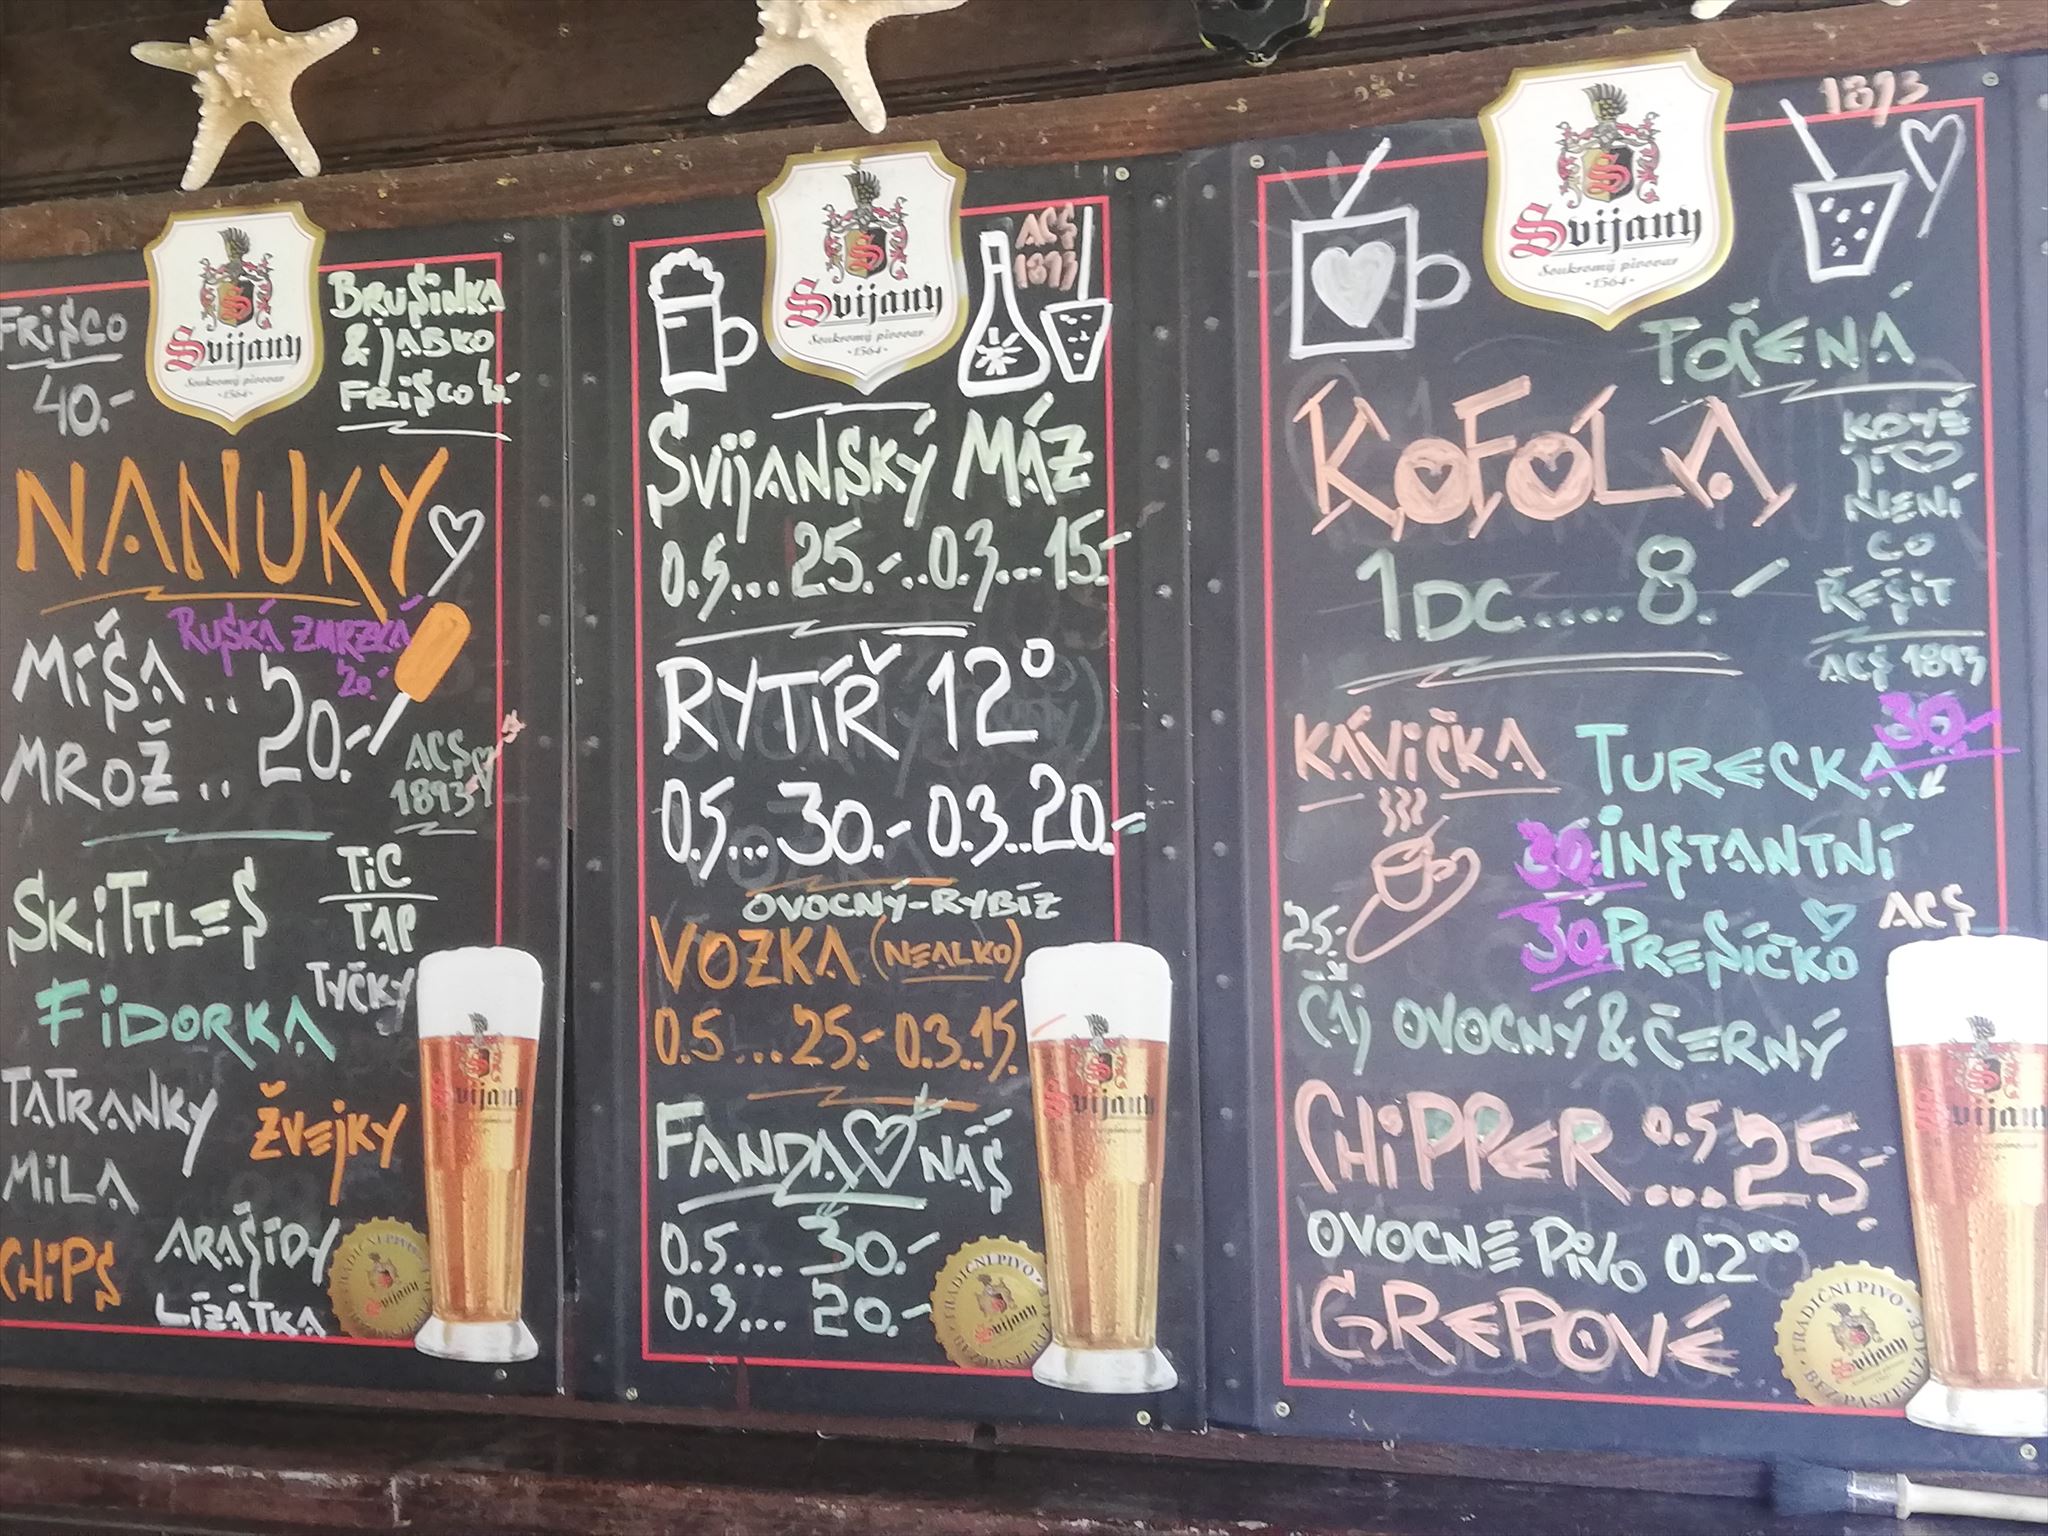 FRIŠCO
40.-
Svijany
Soukromý pivovar
·1564·
BRUŠINKA
& JABKO
FRIŠCO 40.-
NANUKY
RUSKÁ ZMRZKA
20.-
MÍŠA ..
MROŽ ..
20.-
ACS
1893
SKITTLES
TIC
TAP
TYČKY
FIDORKA
TATRANKY
ŽVEJKY
MILA
CHIPS
ARAŠIDY
LÍZÁTKA
Svijany
Svijany
Soukromý pivovar
·1564·
ACS
1893
SVIJANSKÝ MÁZ
0.5... 25.-..0.3...15.-
RYTÍŘ 12°
0.5...30.- 0.3..20.-
OVOCNÝ-RYBÍZ
VOZKA (NEALKO)
0.5 ...25.- 0.3..15.-
FANDA NÁŠ
0.5... 30.-
0.3... 20.-
TRADIČNÍ PIVO
BEZ PASTERIZACE
Svijany
Svijany
Svijany
Soukromý pivovar
·1564·
1893
TOČENÁ
KOFOLA
1DC.....8.-
KDYŽ
JI
NENÍ
CO
ŘEŠIT
ACS 1893
KÁVIČKA
TURECKÁ 30.-
30.- INSTANTNÍ
30.- PRESÍČKO
ACS
25.-
ČAJ OVOCNÝ & ČERNÝ
CHIPPER 0.5 ....25.-
OVOCNÉ PIVO 0.2°°
GREPOVÉ
TRADIČNÍ PIVO
BEZ PASTERIZACE
Svijany
Svijany